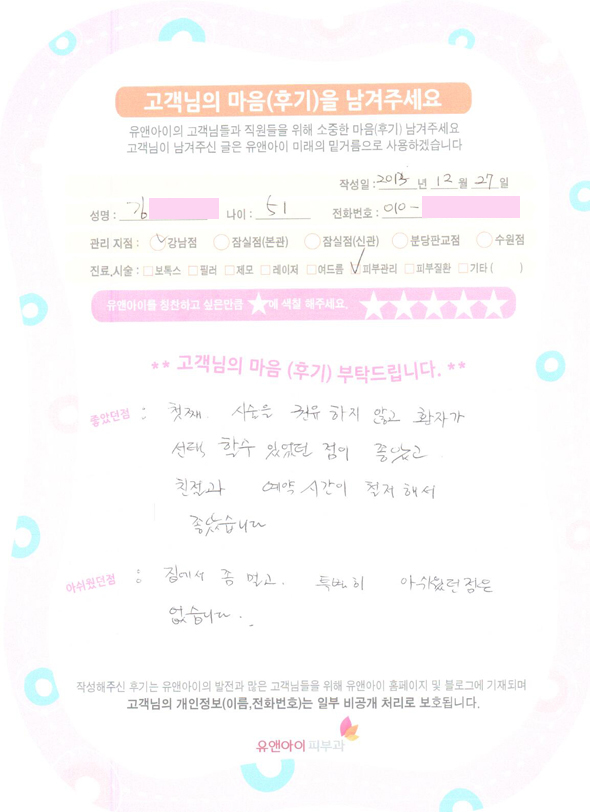 고객님의 마음(후기)을 남겨주세요
유앤아이의 고객님들과 직원들을 위해 소중한 마음(후기) 남겨주세요
고객님이 남겨주신 글은 유앤아이 미래의 밑거름으로 사용하겠습니다
작성일 : 2013 년 12 월 27 일
성명 : 김 나이 : 51 전화번호 : 010 -
관리 지점 : 강남점 잠실점(본관) 잠실점(신관) 분당판교점 수원점
진료,시술 : 보톡스 필러 제모 레이저 여드름 피부관리 피부질환 기타 ( )
유앤아이를 칭찬하고 싶은만큼 ★에 색칠 해주세요. ★★★★★
** 고객님의 마음 (후기) 부탁드립니다. **
좋았던점 : 첫째. 시술을 권유 하지 않고 환자가
선택 할수 있었던 점이 좋았고
친절과 예약 시간이 철저 해서
좋았습니다
아쉬웠던점 : 집에서 좀 멀고. 특별히 아쉬웠던 점은
없습니다.
작성해주신 후기는 유앤아이의 발전과 많은 고객님들을 위해 유앤아이 홈페이지 및 블로그에 기재되며
고객님의 개인정보(이름,전화번호)는 일부 비공개 처리로 보호됩니다.
유앤아이 피부과